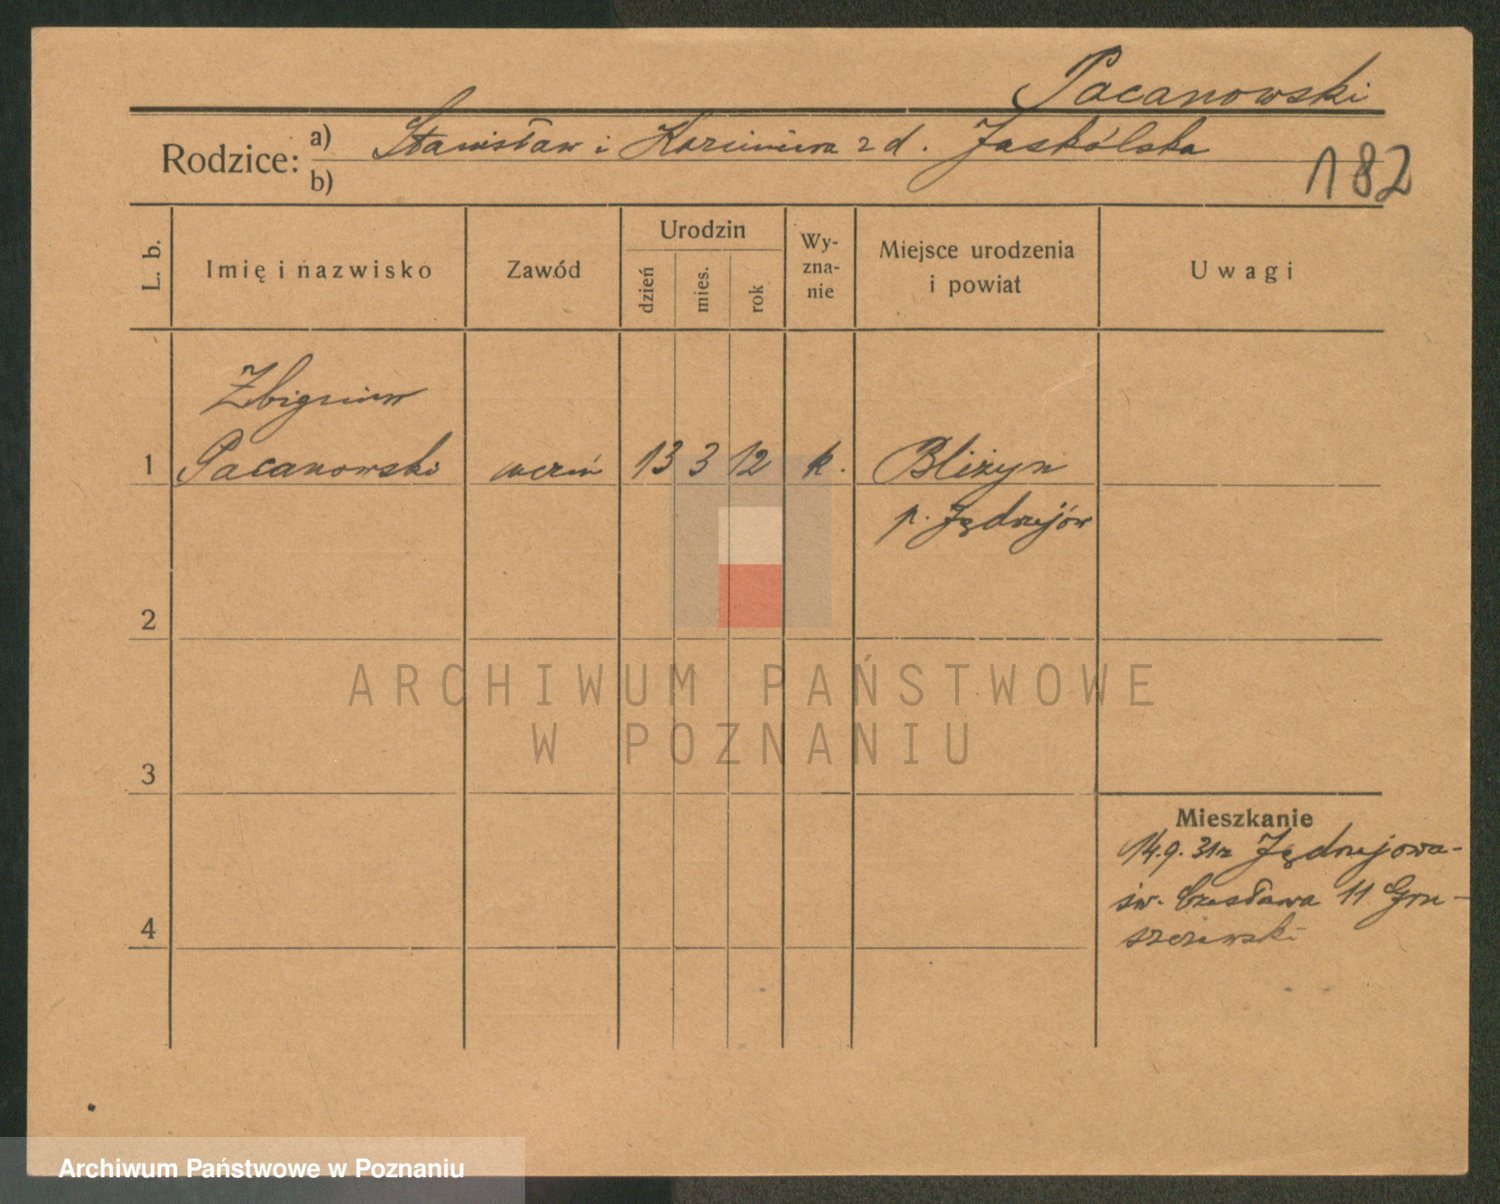 Pacanowski
Rodzice: a) Stanisław i Kazimiera z d. Jaskólska
b)
182
L. b.
Imię i nazwisko
Zawód
Urodzin
dzień
mies.
rok
Wy-
zna-
nie
Miejsce urodzenia
i powiat
Uwagi
Zbigniew
1 Pacanowski uczeń 13 3 12 k. Bliżyn
p. Jędrzejów
2
ARCHIWUM PAŃSTWOWE
W POZNANIU
3
Mieszkanie
14.9.31 z Jędrzejowa-
św. Czesława 11 Gru-
szczewski
4
Archiwum Państwowe w Poznaniu